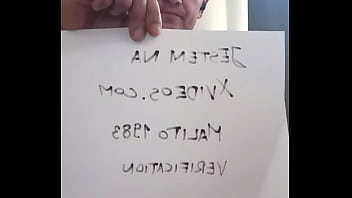 JESTEM NA
XVIDEOS.COM
MALITO 1983
VERIFICATION